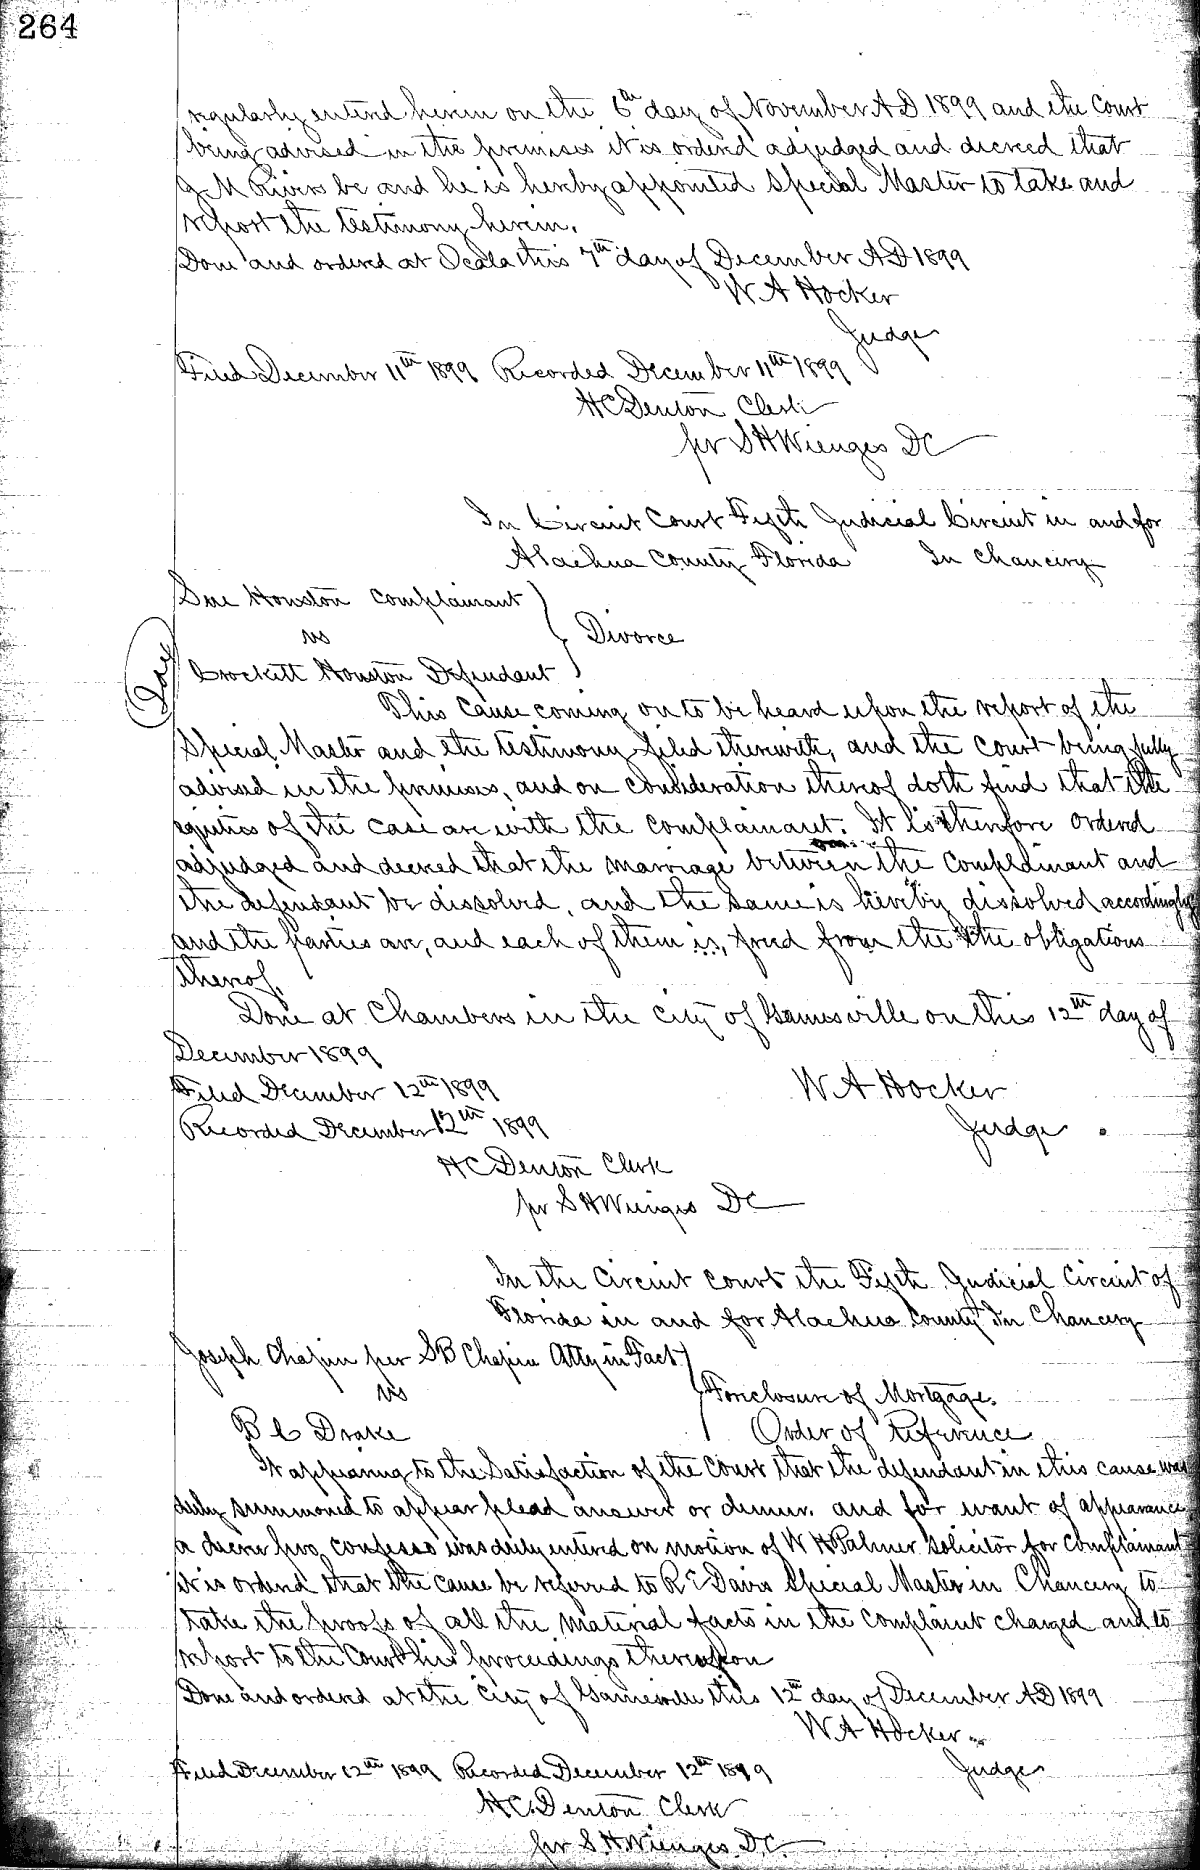 264
regularly entered herein on the 6th day of November A D 1899 and the Court
being advised in the premises it is ordered adjudged and decreed that
G M Rivers be and he is hereby appointed Special Master to take and
report the testimony herein.
Done and ordered at Ocala this 7th day of December A D 1899
W A Hocker
Judge
Filed December 11th 1899 Recorded December 11th 1899
H C Denton Clerk
per S H Wienges D C
In Circuit Court Fifth Judicial Circuit in and for
Alachua County Florida In Chancery
Sue Houston Complainant
vs
Divorce
Crockett Houston Defendant
This cause coming on to be heard upon the report of the
Special Master and the testimony filed therewith, and the court being fully
advised in the premises, and on consideration thereof doth find that the
equities of the case are with the complainant. It is therefore ordered
adjudged and decreed that the marriage between the complainant and
the defendant be dissolved, and the same is hereby dissolved accordingly
and the parties are, and each of them is, freed from the the obligations
thereof.
Done at Chambers in the city of Gainesville on this 12th day of
December 1899
Filed December 12th 1899
W A Hocker
Recorded December 12th 1899
Judge
H C Denton Clerk
per S H Wienges D C
In the Circuit court the Fifth Judicial Circuit of
Florida in and for Alachua County In Chancery
Joseph Chapin per S B Chapin Atty in Fact
vs
Foreclosure of Mortgage.
B C Drake
Order of Reference
It appearing to the Satisfaction of the Court that the defendant in this cause was
duly summoned to appear plead answer or demur. and for want of appearance
a decree pro confesso was duly entered on motion of W H Palmer Solicitor for Complainant
it is ordered that the cause be referred to R E Davis Special Master in Chancery to
take the proofs of all the material facts in the complaint charged and to
report to the Court his proceedings thereupon
Done and ordered at the city of Gainesville this 12th day of December A D 1899
W A Hocker
Filed December 12th 1899 Recorded December 12th 1899
Judge
H C. Denton Clerk
per S H Wienges D C